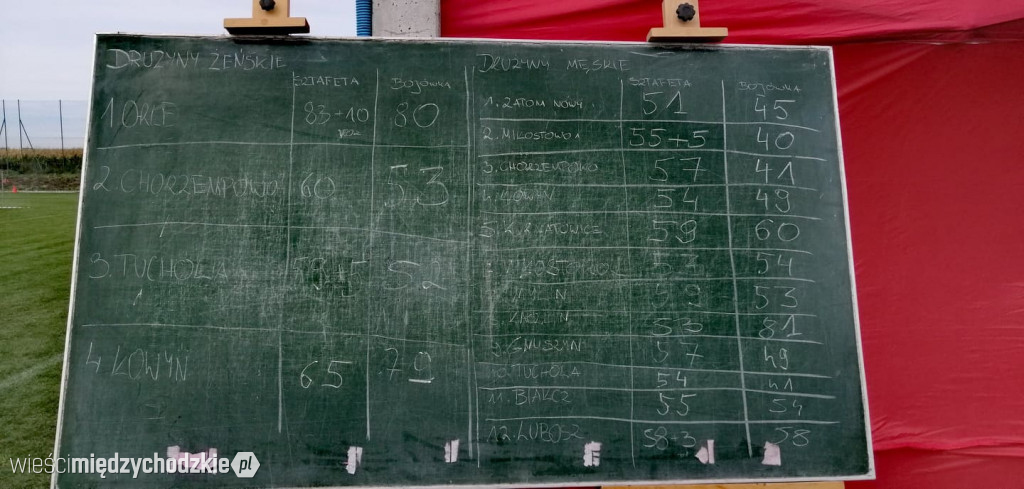 DRUŻYNY ŻEŃSKIE
SZTAFETA BOJÓWKA
1. ORLE 83+10 80
2. CHORZEMPOWO 60 53
3. TUCHOLA 52
4. KOWYN 65 79
DRUŻYNY MĘSKIE
SZTAFETA BOJÓWKA
1. ZATOM NOWY 51 45
2. MIŁOSTOWO 1 55+5 40
3. CHORZEMPOWO 57 41
ŁOWYŃ 54 49
5. KATOWICE 59 60
54
53
53 81
9. GNUSZYN 57 49
TUCHOLA 54 41
11. BIAŁCZ 55 54
12. LUBOSZ 58+3 58
wieścimiędzychodzkie.pl